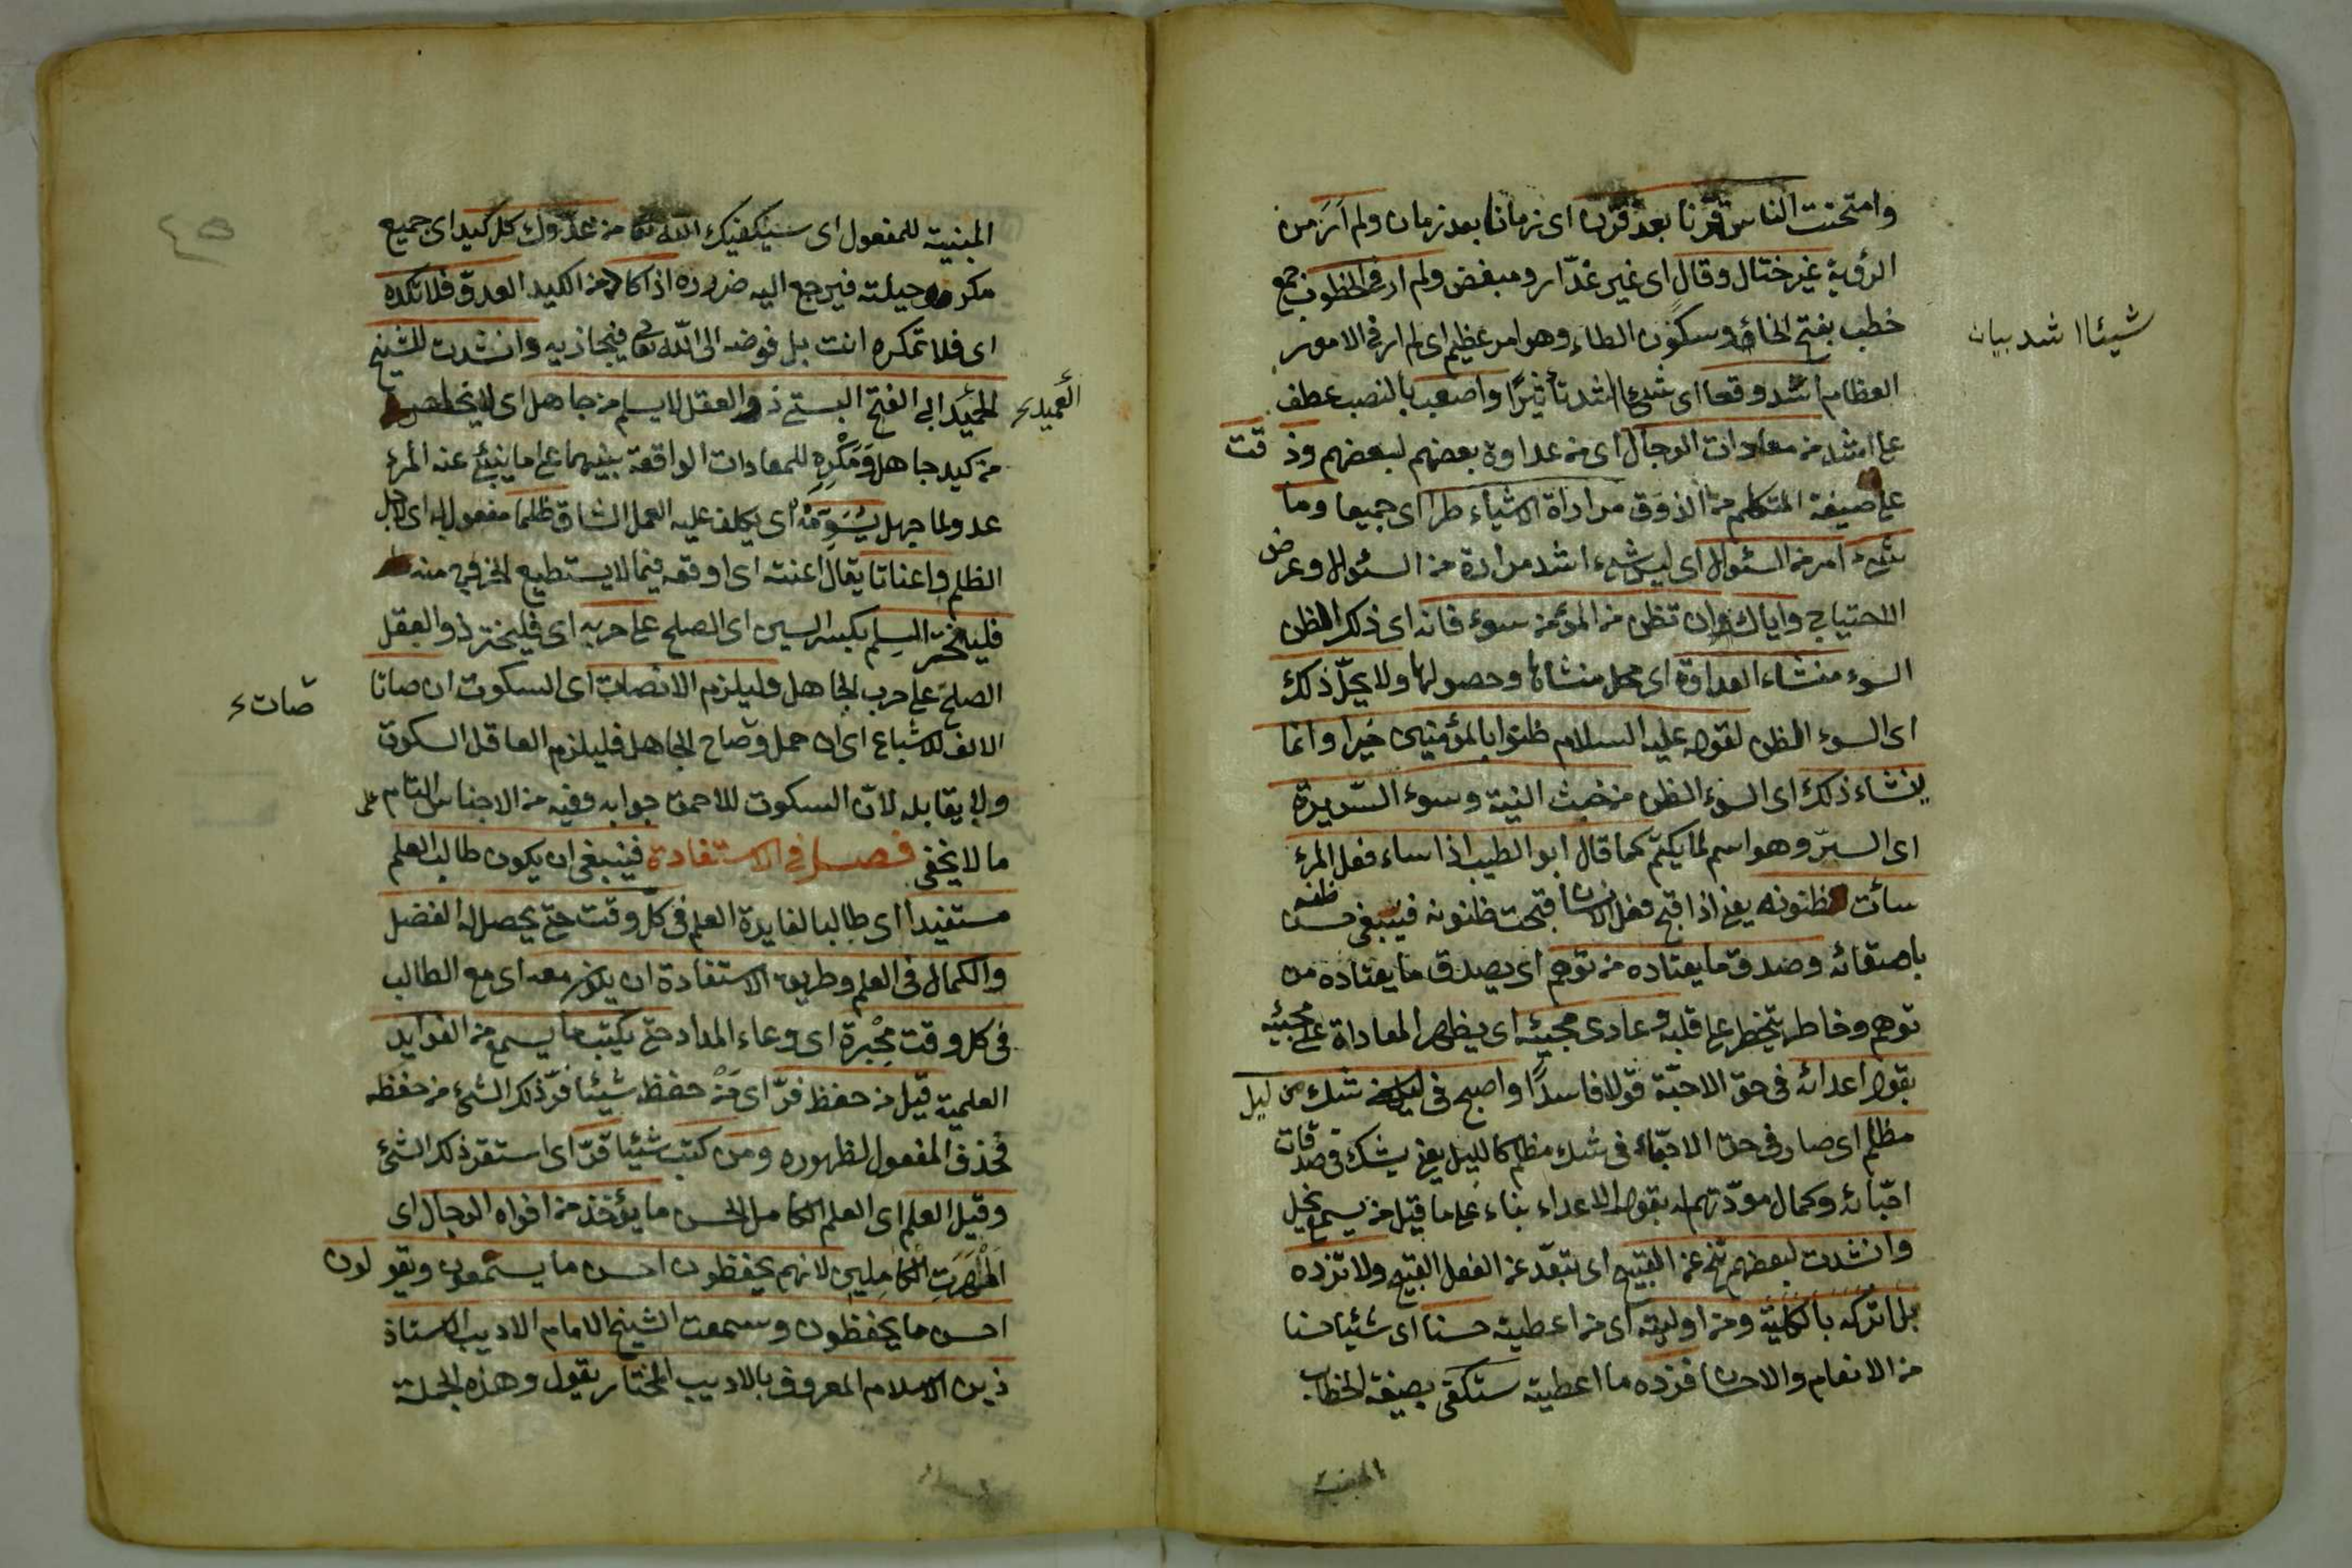 وامتحنت الناس قرنا بعد قرن اى زمانا بعد زمان ولم ار من
الرؤية غير ختال وقال اى غير غدّار ومبغض ولم ار فى الخطوب جمع
خطب بفتح الخاء وسكون الطاء وهو امر عظيم اى لم ار فى الامور
شيئا اشد بيان
العظام اشد وقعا اى شيئا اشد تأثيرًا واصعب بالنصب عطف
على اشد من معادات الرجال اى من عداوة بعضهم لبعضهم وذقت
على صيغة المتكلم من الذوق مرارة الاشياء طرا اى جميعا وما
شئ امر من السئوال اى ليس شئ اشد مرارة من السئوال وعرض
الاحتياج واياك وان تظن من المؤمن سوء فانه اى ذلك الظن
السوء منشاء العداوة اى محل منشائها وحصولها ولا يحلّ ذلك
اى السوء الظن لقوله عليه السلام ظنوا بالمؤمنين خيرا وانما
ينشاء ذلك اى السوء الظن من خبث النية وسوء السّريرة
اى السرّ وهو اسم لما يكتم كما قال ابو الطيب اذا ساء فعل المرء
سائت ظنونه يعنى اذا قبح فعل الانسان قبحت ظنونه فينبغى حسن ظنه
باصدقائه وصدق ما يعتاده من توهم اى يصدق ما يعتاده من
توهم وخاطر يتخطر على قلبه وعادى محبيه اى يظهر المعاداة على محبيه
بقول اعدائه فى حق الاحبّة قولا فاسدًا واصبح فى شك من ليل
مظلم اى صار فى حق الاحبّاء فى شك مظلم كالليل يعنى يشك فى صدقات
احبّائه وكمال مودّتهم له بقول الاعداء بناء على ما قيل من يسمع يخل
وانشدت لبعضهم تنح عن القبيح اى تبعّد عن الفعل القبيح ولا تزده
بل اتركه بالكلية ومن اوليته اى من اعطيته حسنا اى شيئا حسنا
من الانعام والاحسان فزده ما اعطيته ستكفى بصيغة الخطاب
المبنية
المبنية للمفعول اى سيكفيك الله تعا من عدوك كل كيد اى جميع
مكره وحيلته فيرجع اليه ضرره اذا كاد من الكيد العدوّ فلا تكده
اى فلا تمكره انت بل فوضه الى الله تعا فيجازيه وانشدت للشيخ
العميد
ابى الفتح البستى ذو العقل لا يسلم من جاهل اى لا يخلص
من كيد جاهل ومكره للمعادات الواقعة بينهما على ما ينبئ عنه المرء
عدو لما جهل يسومه اى يكلف عليه العمل الشاق ظلما مفعول له اى لاجل
الظلم واعناتا يقال اعنته اى اوقعه فيما لا يستطيع الخروج منه
فليختر السلم بكسر السين اى الصلح على حربه اى فليختر ذو العقل
الصلح على حرب الجاهل وليلزم الانصات اى السكوت ان صاتا
صات
الالف للاشباع اى ان حمل وصاح الجاهل فليلزم العاقل السكوت
ولا يقابله لانّ السكوت للاحمق جوابه وفيه من الاجناس التام على
ما لا يخفى فصل فى الاستفادة فينبغى ان يكون طالب العلم
مستفيدا اى طالبا لفايدة العلم فى كلّ وقت حتى يحصل له الفضل
والكمال فى العلم وطريق الاستفادة ان يكون معه اى مع الطالب
فى كل وقت محبرة اى وعاء المداد حتى يكتب ما يسمع من الفوايد
العلمية قيل من حفظ فرّ اى من حفظ شيئا فرّ ذلك الشئ من حفظه
فحذف المفعول لظهوره ومن كتب شيئا قرّ اى استقر ذلك الشئ
وقيل العلم اى العلم الكامل الحسن ما يؤخذ من افواه الرجال اى
الكاملين لانهم يحفظون احسن ما يسمعون ويقولون
احسن ما يحفظون وسمعت الشيخ الامام الاديب الاستاذ
زين الاسلام المعروف بالاديب المختار يقول وهذه الجملة